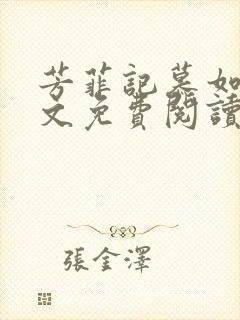 芳菲記慕如
文免費閱讀
張金澤